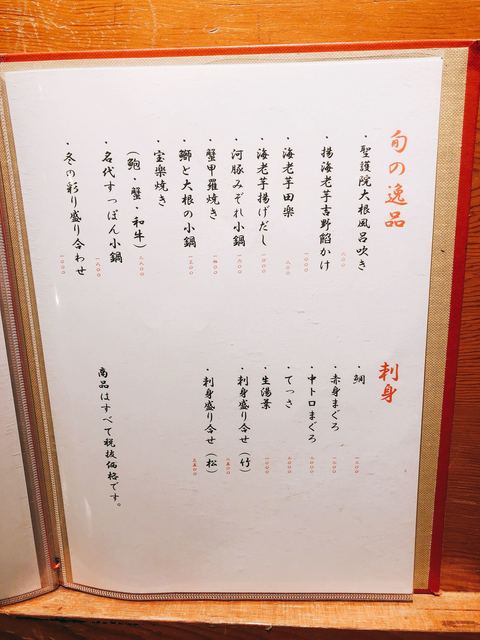 旬の逸品
・聖護院大根風呂吹き
八〇〇
・揚海老芋吉野餡かけ
一〇〇〇
・海老芋田楽
八〇〇
・海老芋揚げだし
一〇〇〇
・河豚みぞれ小鍋
・蟹甲羅焼き
・鰤と大根の小鍋
・宝楽焼き
(鮑・蟹・和牛)
・名代すっぽん小鍋
・冬の彩り盛り合わせ
刺身
・鯛
・赤身まぐろ
・中トロまぐろ
・てっさ
・生湯葉
・刺身盛り合せ(竹)
・刺身盛り合せ(松)
商品はすべて税抜価格です。